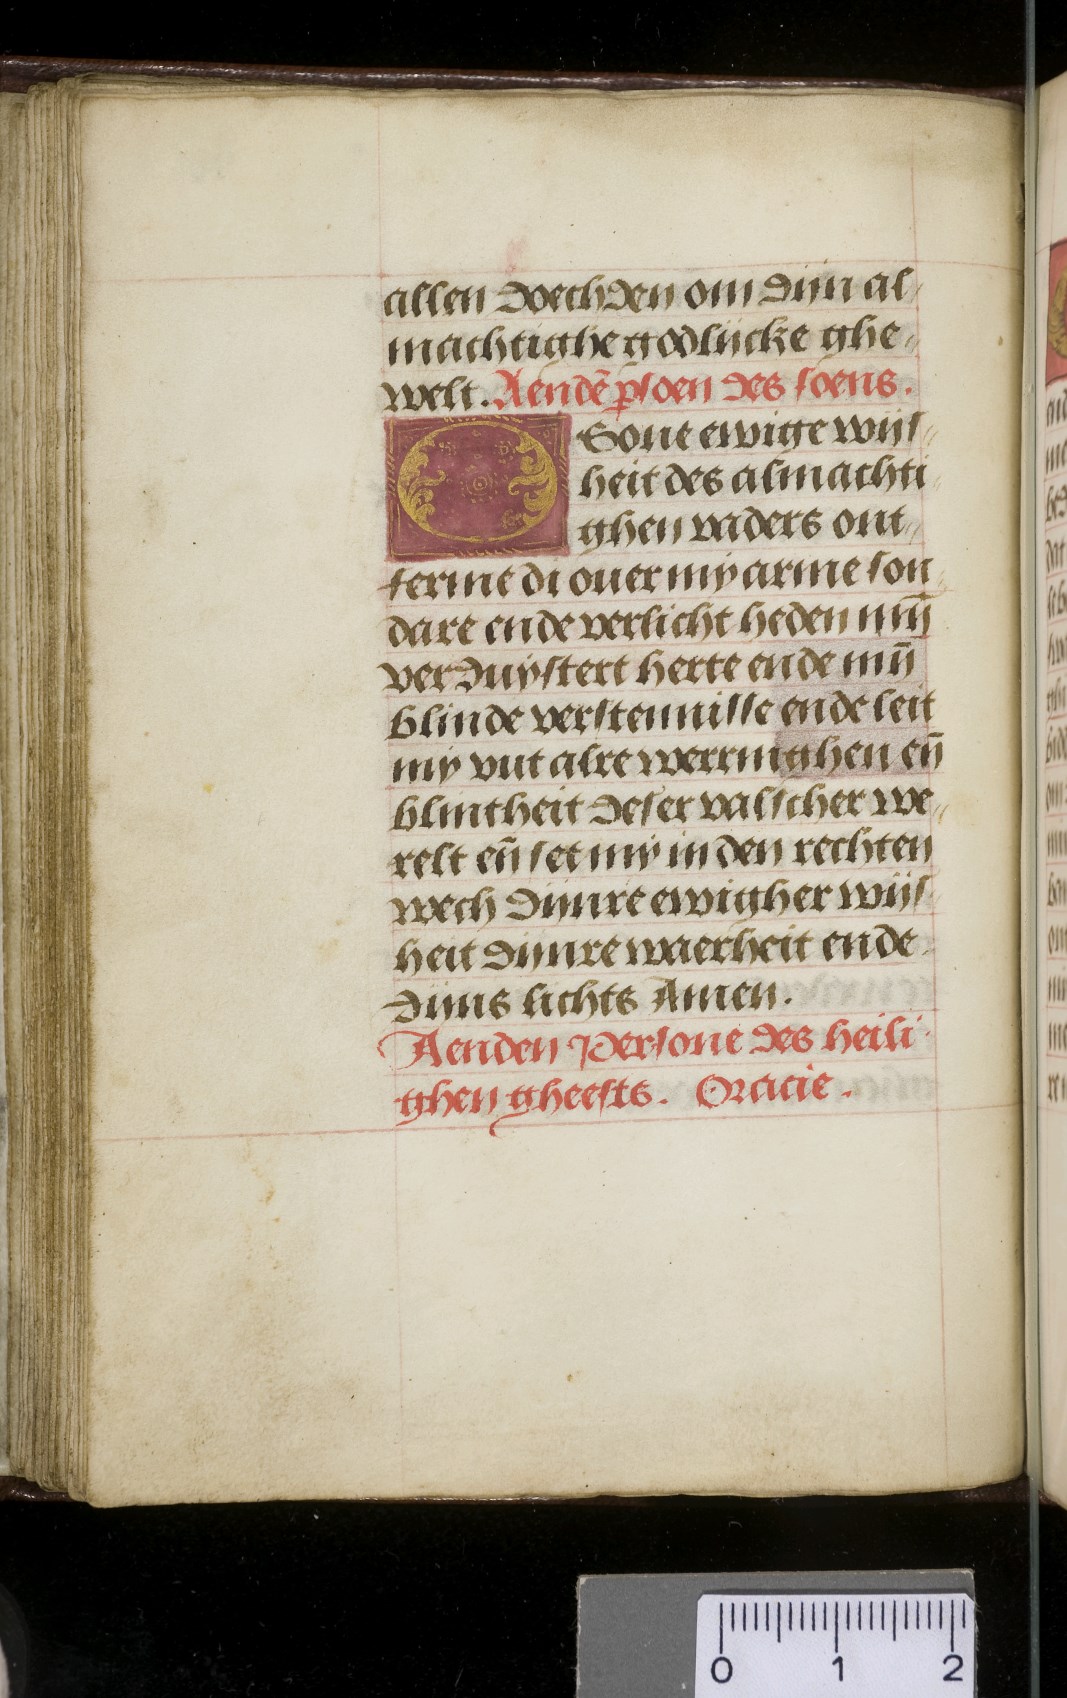 allen doechden om dijn al
machtighe godlijcke ghe
welt. Aendē ꝑsoen des soens.
O Sone ewige wijs
heit des almachti
ghen vaders ont
ferme di ouer mij arme son
dare ende verlicht heden mijn̄
verduijstert herte ende mijn̄
blinde verstennisse ende leit
mij vut alre werringhen en̄
blintheit deser valscher we
relt en̄ set mij in den rechten
wech dijnre ewigher wijs
heit dijnre waerheit ende
dijns lichts Amen.
Aenden Persone des heili
ghen gheests. Oracie.
0 1 2